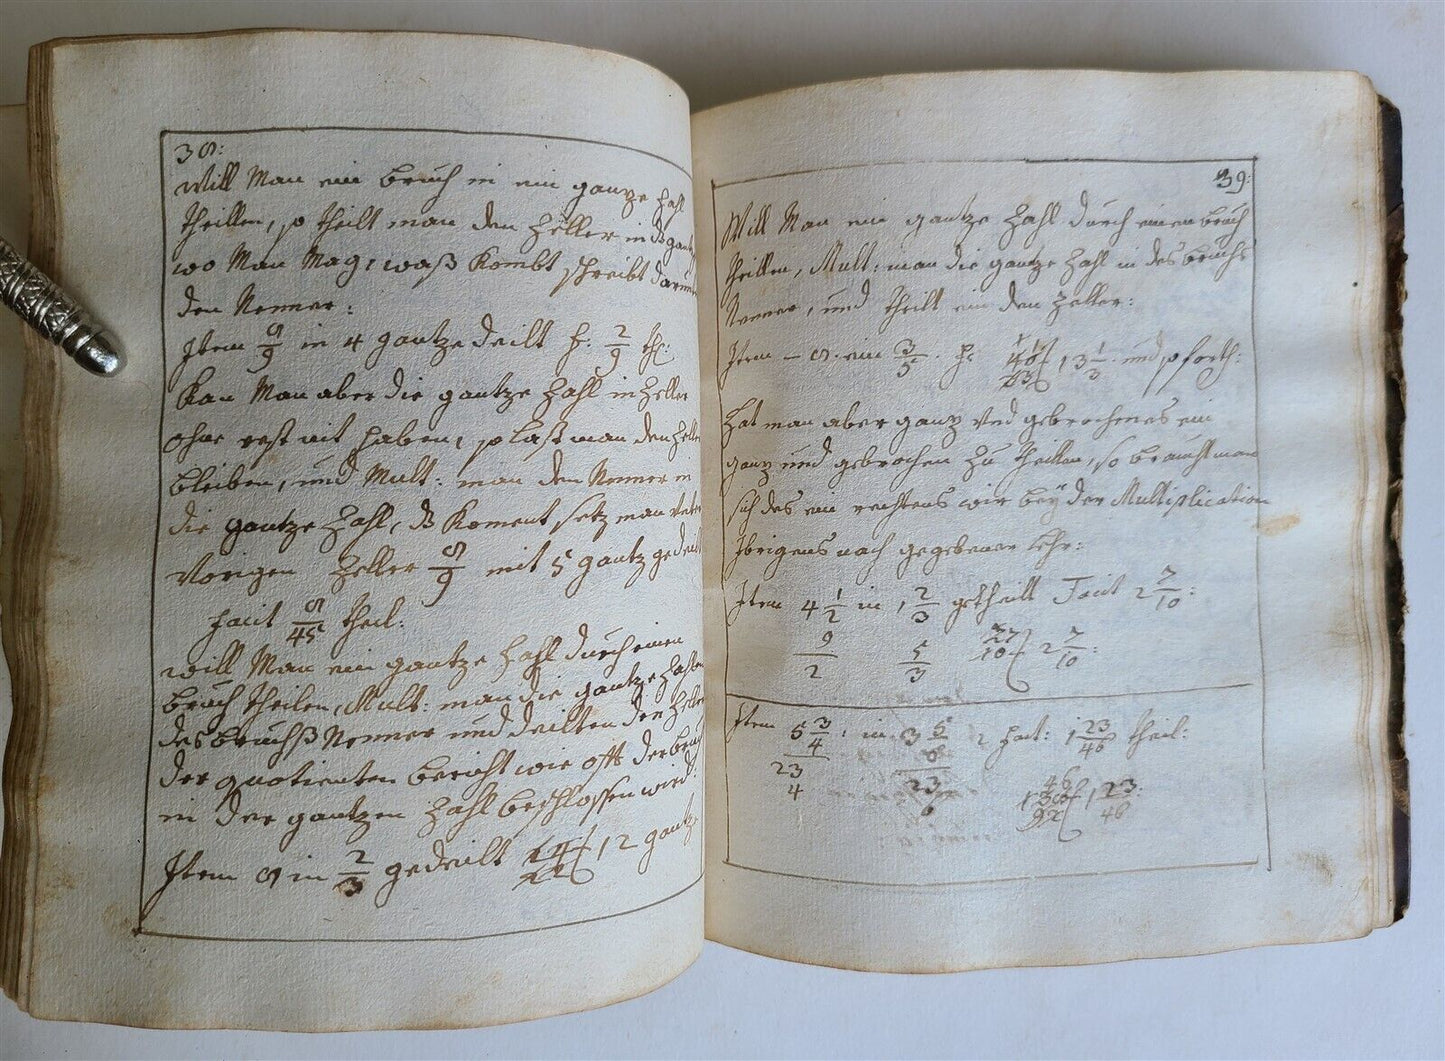 38:
Will Man ein bruch in ein gantze Zahl
theillen, so theilt man den Zeller in ds gantz
wo Man Mag, waß Kombt schreibt darunter
den Nenner:
Item 8/9 in 4 gantze deilt f: 2/9 th:
Kan Man aber die gantze Zahl in Zeller
ohne rest nit haben, so laß man den Zeller
bleiben, und Mult: man den Nenner in
die gantze Zahl, ds Koment setz man unter
Vorigen Zeller 8/9 mit 5 gantz gedeilt
facit 8/45 theil:
will Man ein gantze Zahl durch einen
bruch theilen, Mult: man die gantze Zahl
des bruchß Nenner und deilt den Zeller
der quotienten bericht wie offt der bruch
in der gantzen Zahl beschlossen wird:
Item 8 in 2/3 gedeilt 12 gantze
39:
Will Man ein gantze Zahl durch einen bruch
theillen, Mult: man die gantze Zahl in des bruchs
Nenner, und theilt ein den Zeller:
Item – 8 ein 3/5 f: 40 13 1/3 und so forth:
Hat man aber gantz und gebrochenes ein
gantz und gebrochen zu theillen, so braucht man
sich des ein rechtens wie bey der Multiplication
Ibrigens nach gegebener Lehr:
Item 4 1/2 in 1 2/3 getheilt Facit 2 7/10:
9/2 5/3 27/10 2 7/10:
Item 5 3/4 in 3 5/6 facit: 1 23/46 theil:
23/4 23/6 1 23/46